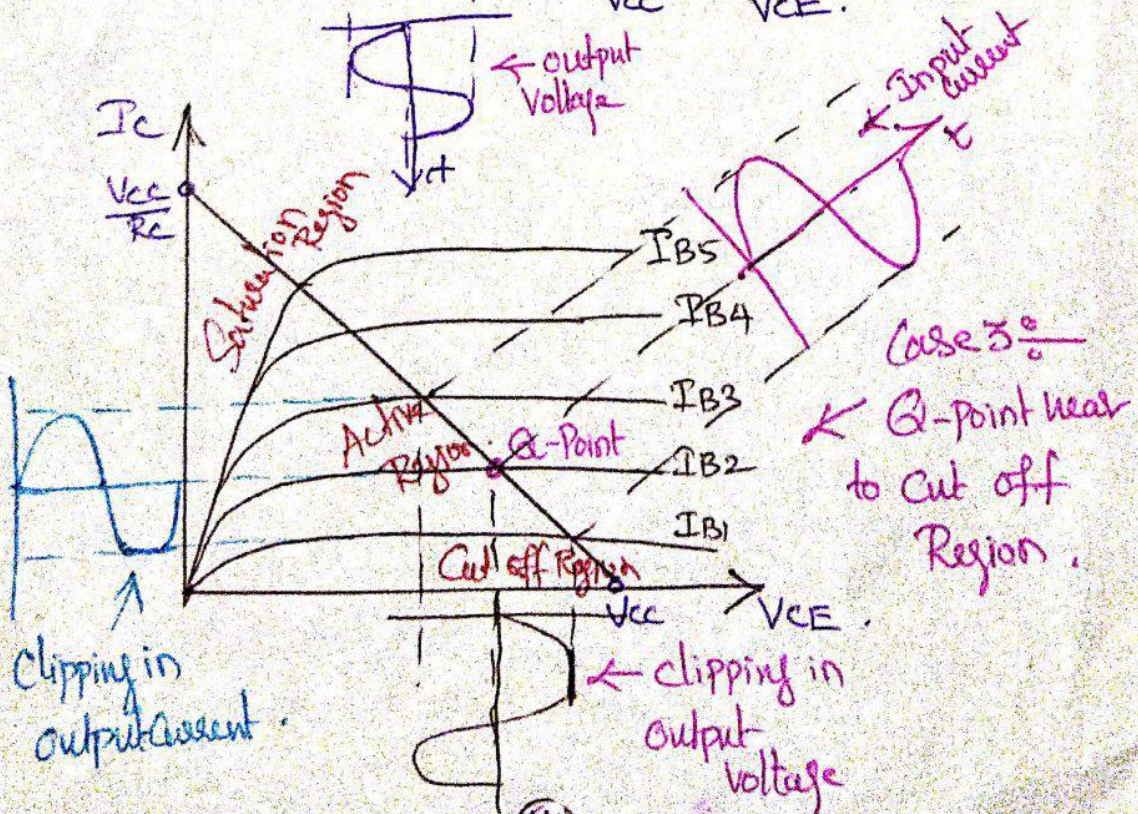 VCC VCE.
← output
Voltage
t
← Input
Current
t
IC
VCC
RC
Saturation
Region
IB5
IB4
IB3
IB2
IB1
Active
Region
Q-Point
Case 3 :-
← Q-point near
to Cut off
Region.
Cut off Region
VCC
VCE.
Clipping in
output Current.
← clipping in
output
Voltage